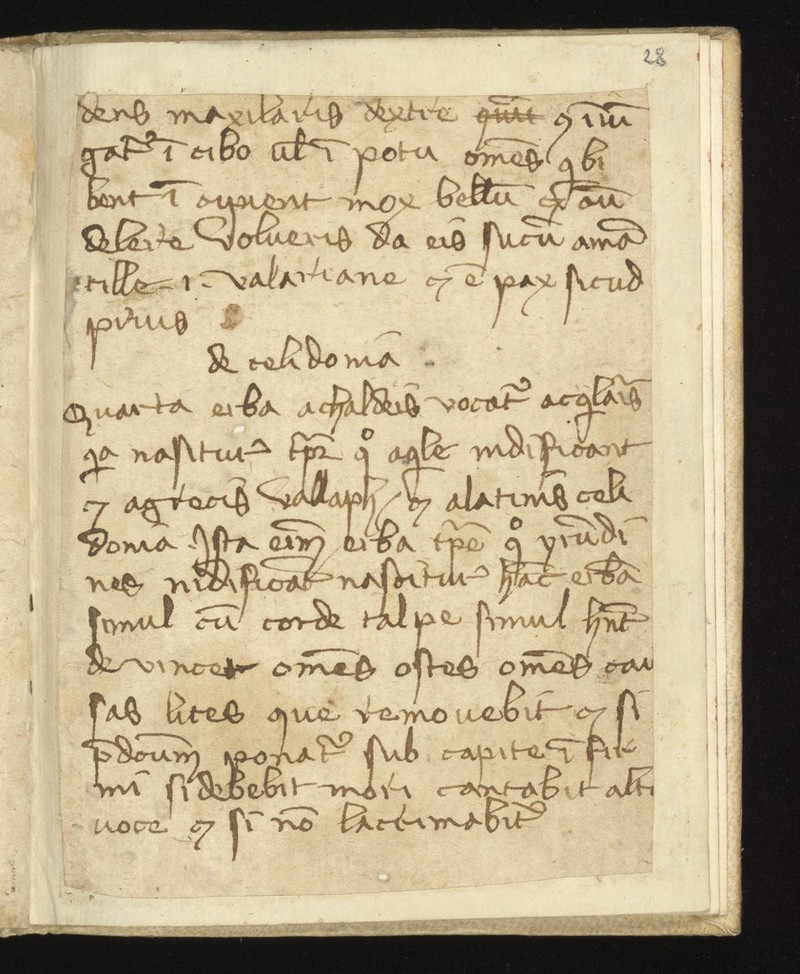 28
dens maxilaris dextre  ꝯ iūi
gat᷑ ī cibo ul̄ ī potu omēs q bi
bent ī  mox bellū  aū
delere volueris da eis sucū amā
tille .i. valariane ⁊ ē pax sicud
prius
de celidoniā
Quarta erba achaldeis vocat᷑ acq̄laris
q̄a nasitur tp̄r qͦ aq̄le nidificant
⁊ agrecis vallaph ⁊ alatinis celi
doniā . Ista enim̄ erba tp̄e qͦ yrūdi
nes nidificāt nascitur hāc erbā
simul cū corde talpe simul hn̄t
de vincet omēs ostes omēs cau
sas lites que removebit ⁊ si
p̄dcūm ponat᷑ sub capite īfir
mi si debebit mori cantabit alti
voce ⁊ si nō lacrimabit᷑